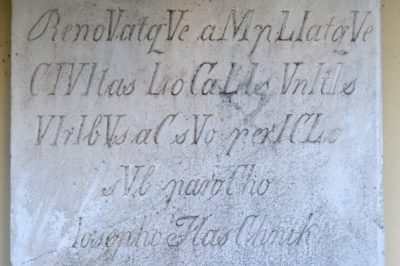 RenoVatqVe aMpLIatqVe
CIVItas LoCaLIs VnItIs
VIrIbVs aC sVo perICLo
sVb paroCho
Iosepho HLasChnik